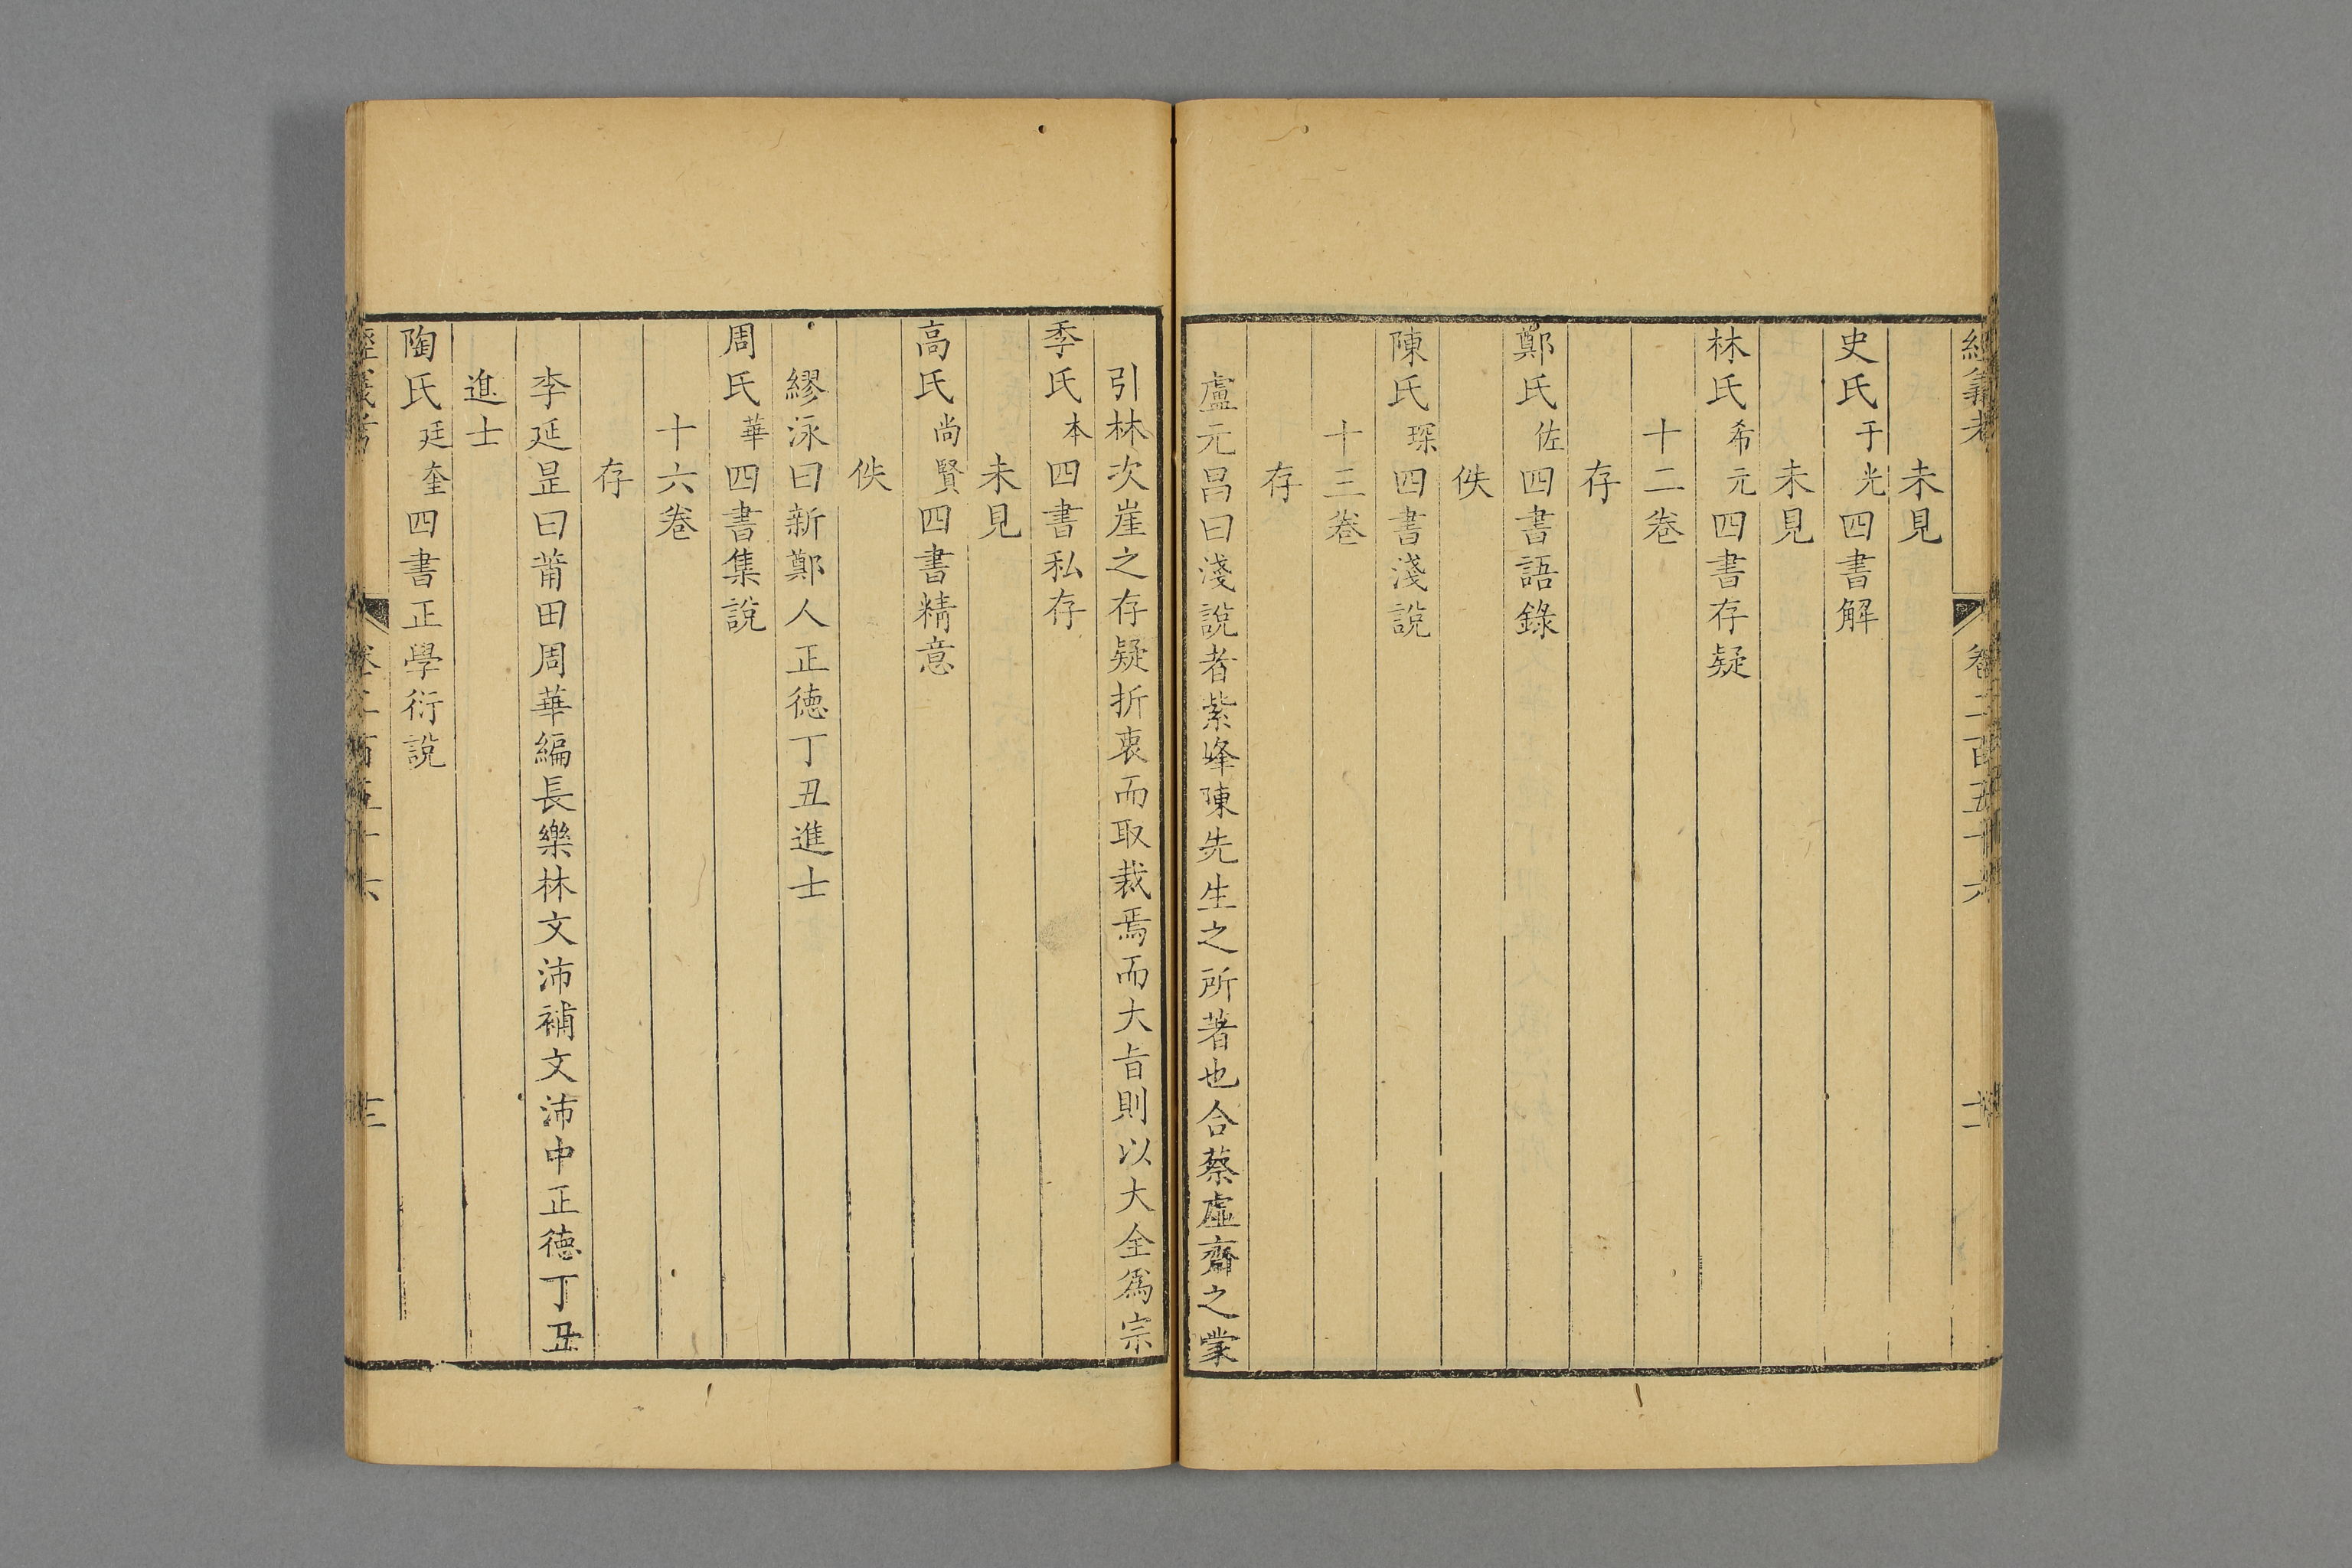 經義考 卷二百五十六 十二
未見
史氏于光四書解
未見
林氏希元四書存疑
十二卷
存
鄭氏佐四書語錄
佚
陳氏琛四書淺說
十三卷
存
盧元昌曰淺說者紫峰陳先生之所著也合蔡虛齋之蒙
引林次崖之存疑折衷而取裁焉而大旨則以大全爲宗
季氏本四書私存
未見
高氏尚賢四書精意
佚
繆泳曰新鄭人正德丁丑進士
周氏華四書集說
十六卷
存
李延昰曰莆田周華編長樂林文沛補文沛中正德丁丑
進士
陶氏廷奎四書正學衍說
經義考 卷二百五十六 十三